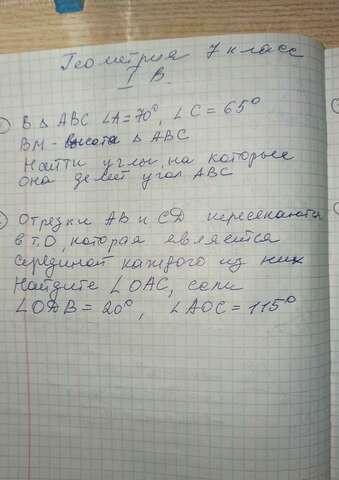 Геометрия 7 класс
I В.
) В △ ABC ∠A=70°, ∠C=65°
BM - высота △ ABC
Найти углы, на которые
она делит угол ABC
) Отрезки AB и CD пересекаются
в т.O, которая является
серединой каждого из них
Найдите ∠OAC, если
∠ODB=20°, ∠AOC=115°